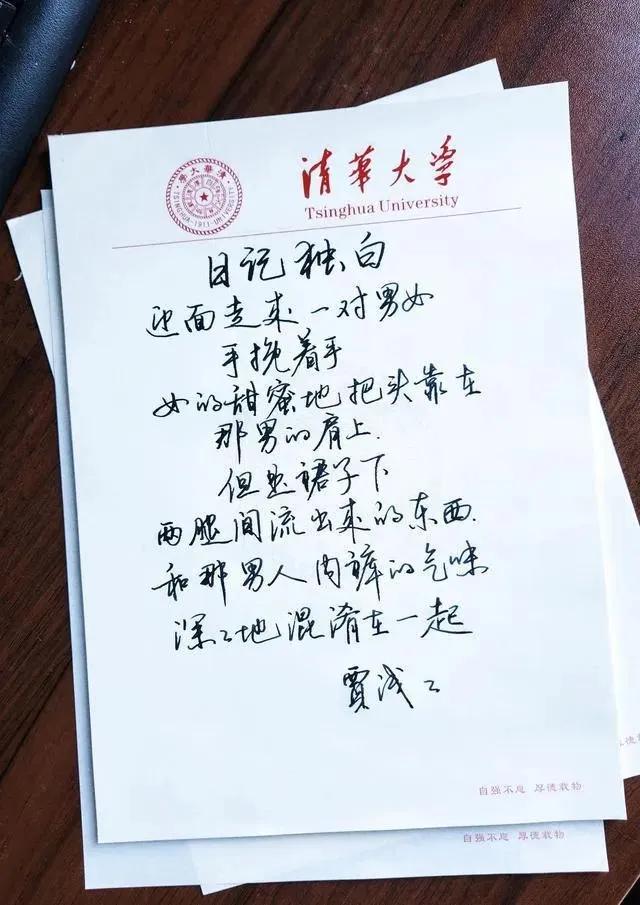 清華大学
Tsinghua University
清華大學
TSINGHUA-1911-UNIVERSITY
日记独白
迎面走来一对男女
手挽着手
女的甜蜜地把头靠在
那男的肩上.
但是裙子下
两腿间流出来的东西.
和那男人内裤的气味
深々地混淆在一起
贾浅々
自强不息 厚德载物
自强不息 厚德载物